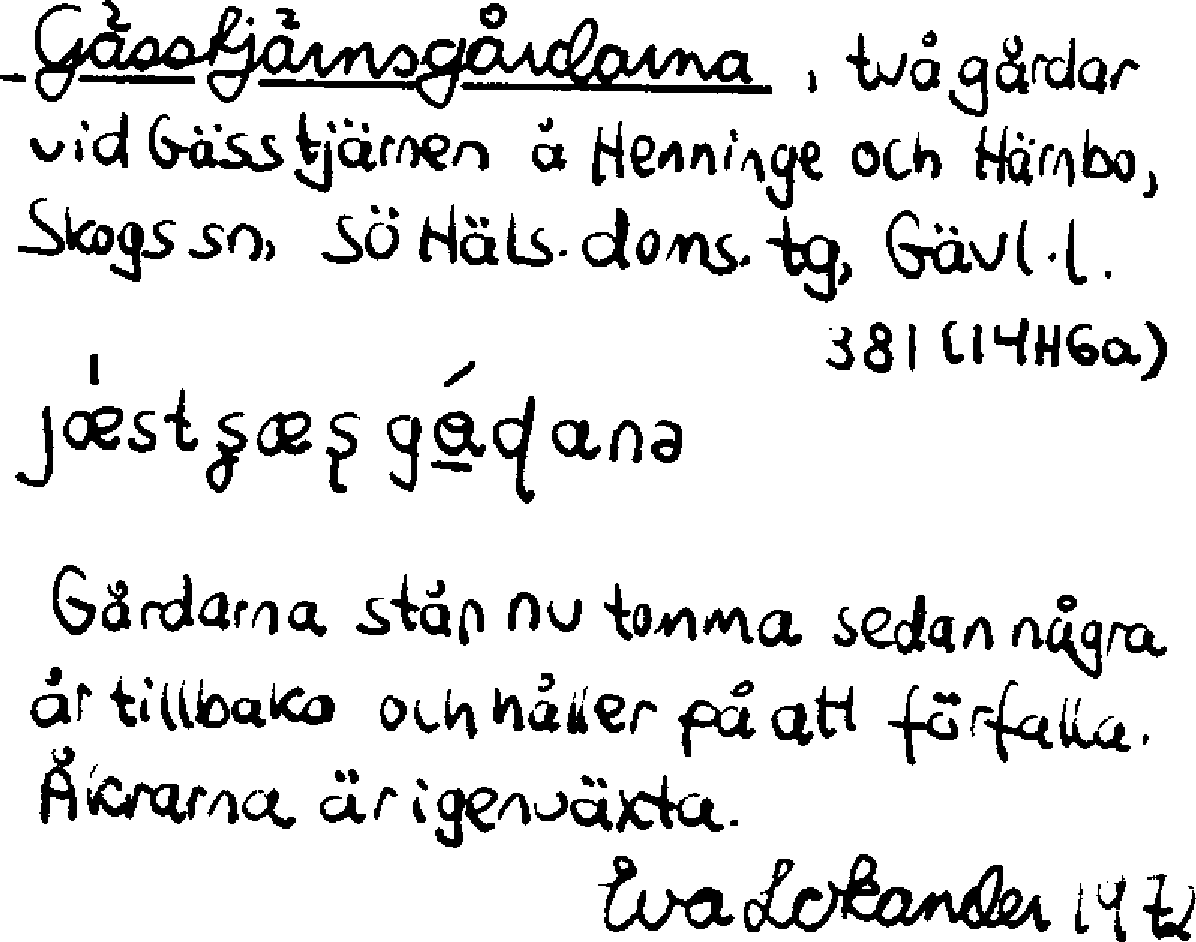 Gässtjärnsgårdarna, två gårdar
vid Gässtjärnen å Henninge och Härnbo,
Skogs sn, Sö Häls. doms. tg, Gävl. l.
381 (14H6a)
jǽstʂæʂgádana
Gårdarna står nu tomma sedan några
år tillbaka och håller på att förfalla.
Åkrarna är igenväxta.
Eva Lokander 1972